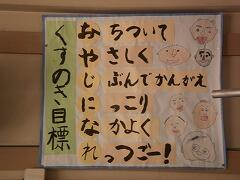 くすのき目標
おちついて
やさしく
じぶんでかんがえ
にっこり
なかよく
れっつごー！